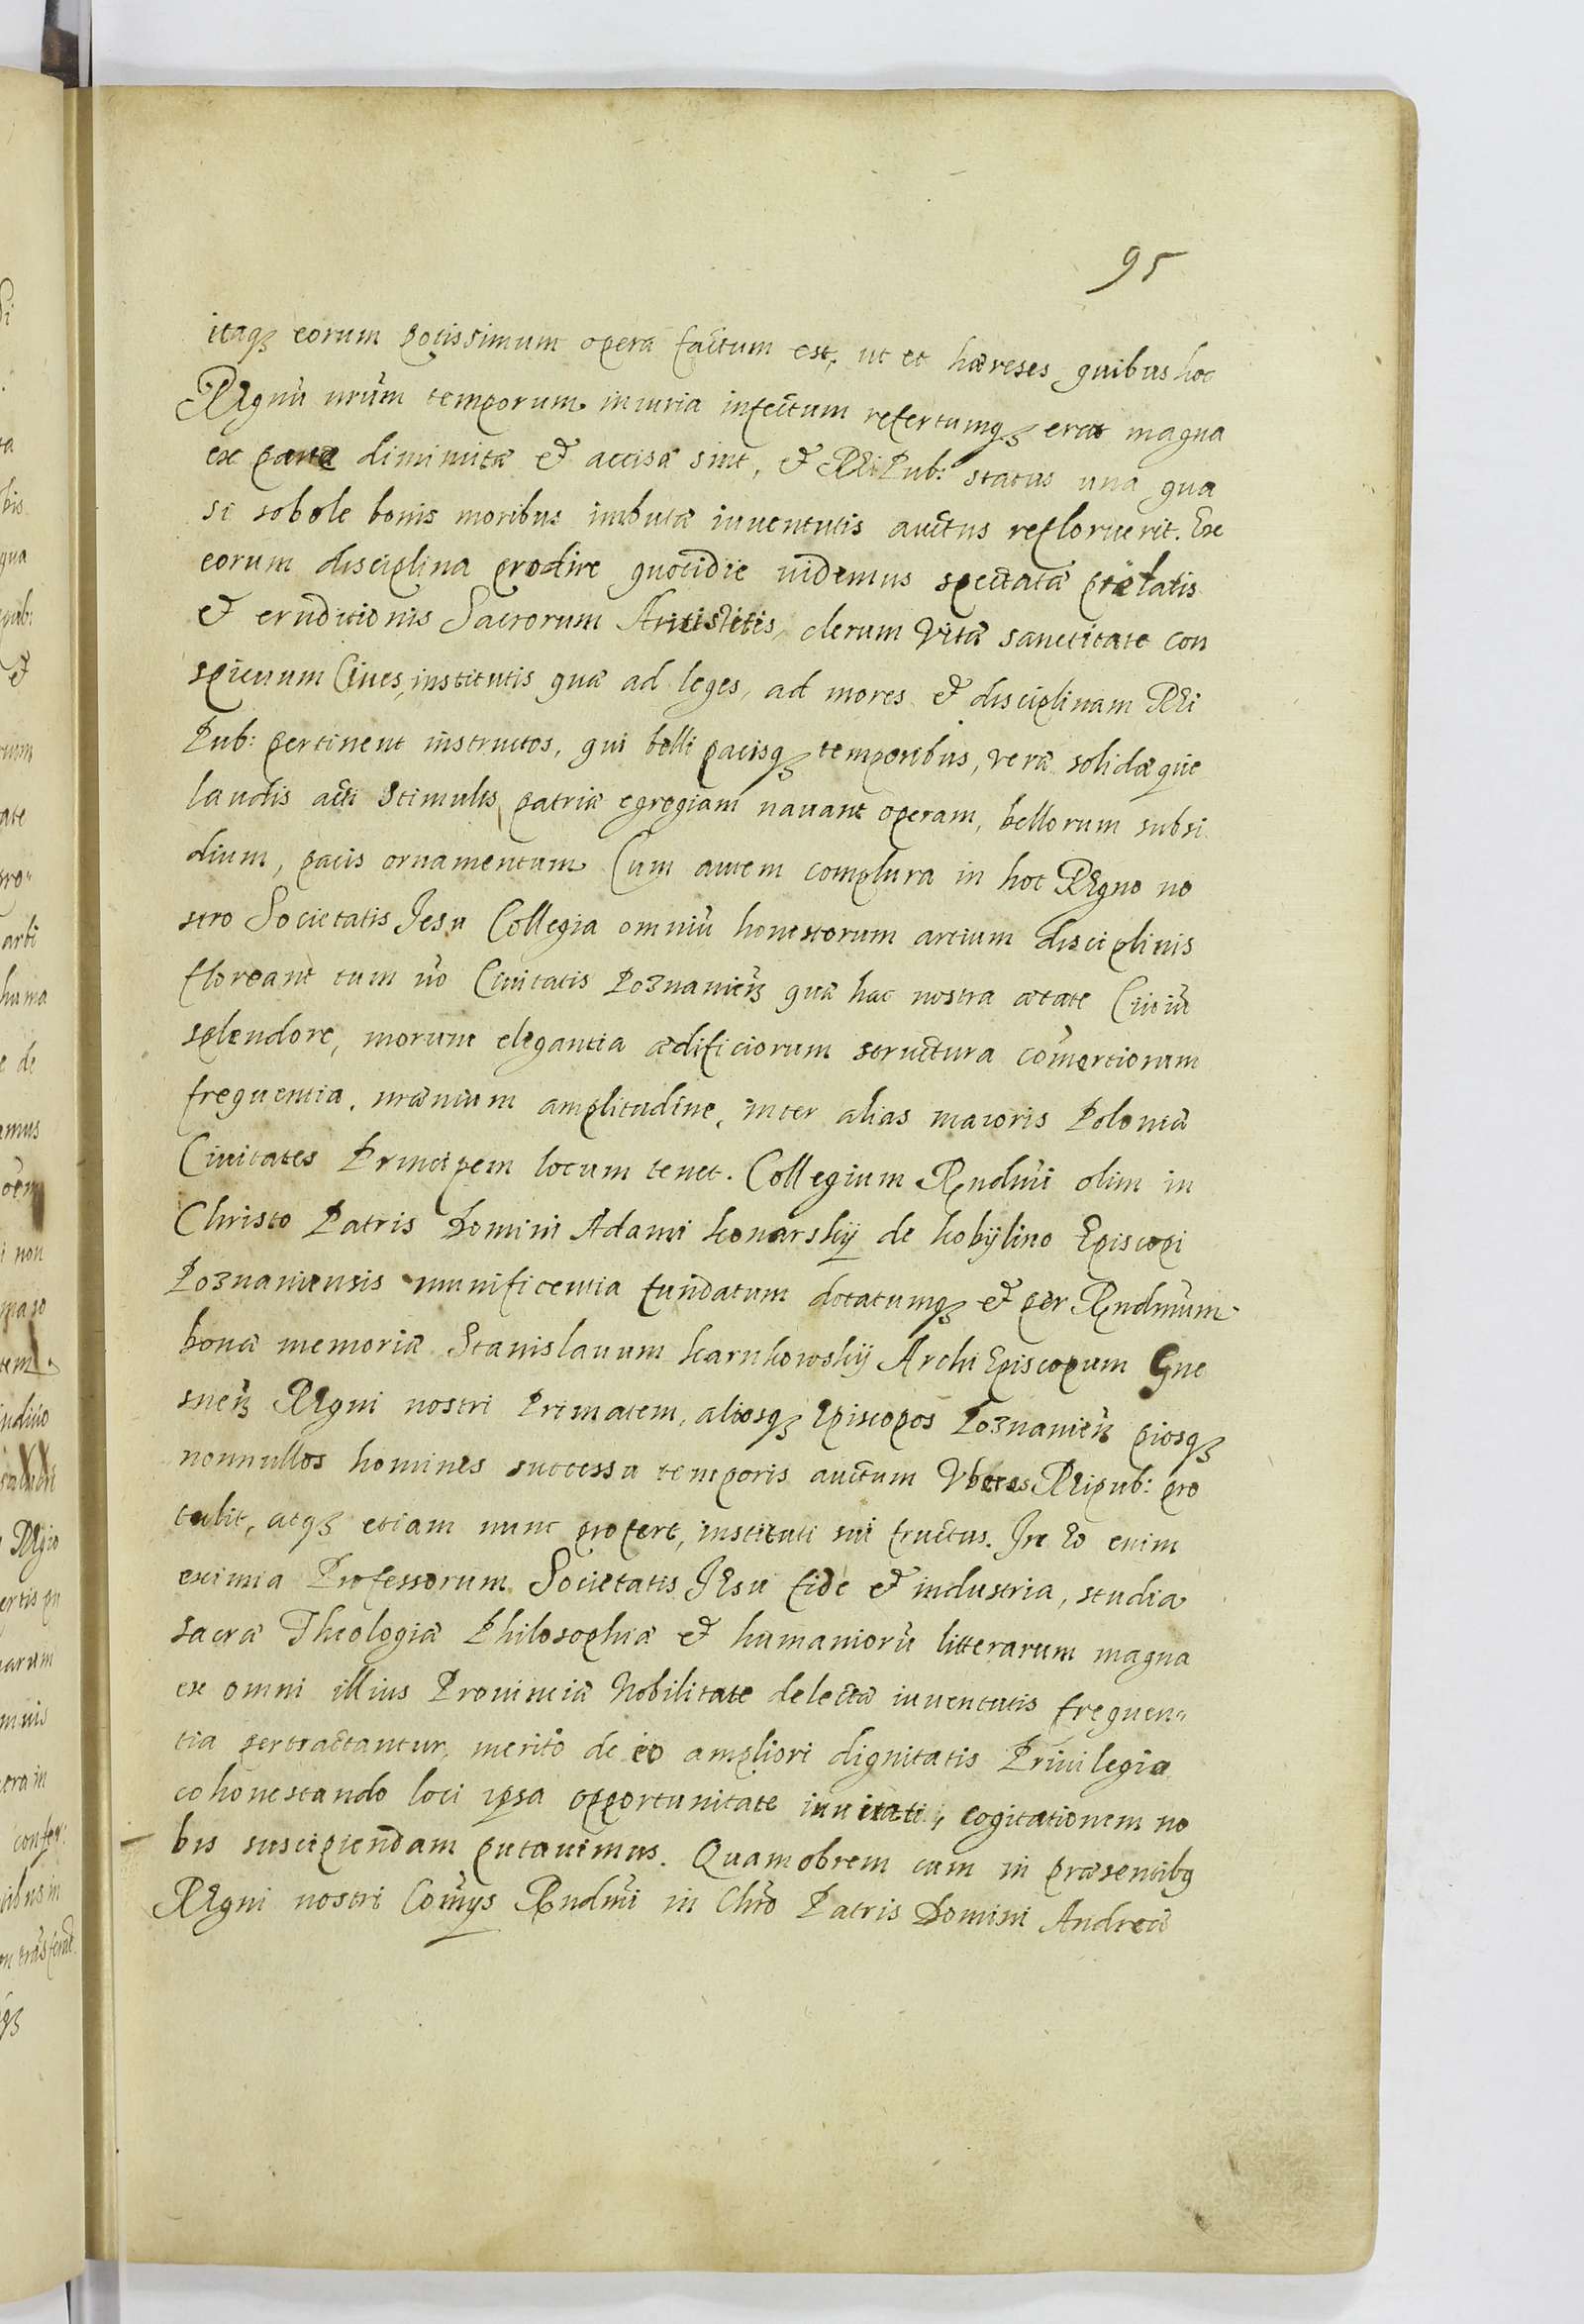 95
itaqȝ eorum potissimum opera factum est, ut et hæreses quibus hoc
Regnũ nrũm temporum iniuria infectum refertumqȝ erat magna
ex parte diminutæ & accisæ sint, & Rei Pub: status una qua
si sobole bonis moribus imbutæ iuuentutis auctus refloruerit. Ex
eorum disciplina prodire quotidie uidemus spectatæ pietatis
& eruditionis Sacrorum Antistites, clerum Vitæ sanctitate con
spicuum Ciues, institutis quæ ad leges, ad mores & disciplinam Rei
Pub: pertinent instructos, qui belli pacisqȝ temporibus, veræ solidæque
laudis acti stimulis patriæ egregiam nauant operam, bellorum subsi
dium, pacis ornamentum Cum autem complura in hoc Regno no
stro Societatis Jesu Collegia omniũ honestorum artium disciplinis
floreant tum ũo Ciuitatis Poznanieñ quæ hac nostra ætate Ciuiũ
splendore, morum elegantia ædificiorum structura com̃ertiorum
frequentia, mæniũm amplitudine, inter alias maioris Poloniæ
Ciuitates Principem locum tenet. Collegium Rndmi olim in
Christo Patris Domini Adami Konarskij de Kobijlino Episcopi
Poznaniensis munificentia fundatum dotatumqȝ & per Rndmum
bonæ memoriæ Stanislauum Karnkowskij Archi Episcopum Gne
sneñ Regni nostri Primatem, aliosqȝ Episcopos Poznanieñ piosqȝ
nonnullos homines successu temporis auctum Vberes Reipub: pro
tulit, atqȝ etiam nunc profert, instituti sui fructus. In Eo enim
eximia Professorum Societatis Jesu fide & industria, studia
sacræ Theologiæ Philosophiæ & humaniorũ litterarum magna
ex omni illius Prouinciæ Nobilitate delectæ iuuentutis frequen„
tia pertractantur, merito de eo ampliori dignitatis Priuilegio
cohonestando loci ipsa opportunitate inuitati, cogitationem no
bis suscipiendam putauimus. Quamobrem cum in præsentibꝫ
Regni nostri Com̃ijs Rndmi in Chro Patris Domini Andreæ